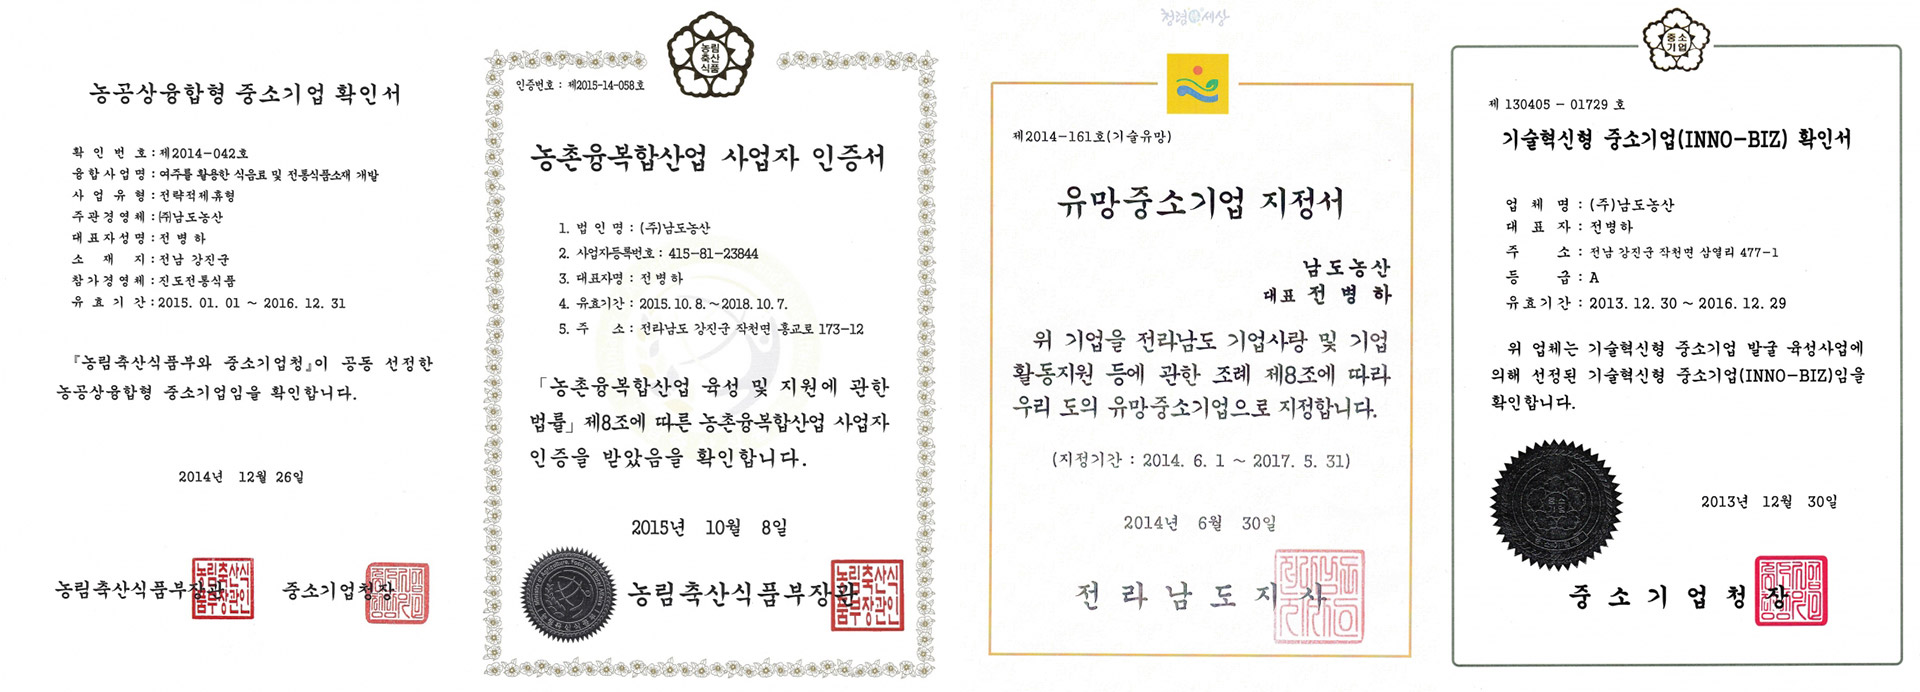 농공상융합형 중소기업 확인서
확 인 번 호 : 제2014-042호
융합사업명 : 여주를 활용한 식음료 및 전통식품소재 개발
사 업 유 형 : 전략적제휴형
주관경영체 : ㈜남도농산
대표자성명 : 전 병 하
소 재 지 : 전남 강진군
참가경영체 : 진도전통식품
유 효 기 간 : 2015. 01. 01 ~ 2016. 12. 31
『농림축산식품부와 중소기업청』이 공동 선정한
농공상융합형 중소기업임을 확인합니다.
2014년 12월 26일
농림축산식품부장관
농림축산식
품부장관인
중소기업청장
농림
축산
식품
인증번호 : 제2015-14-058호
농촌융복합산업 사업자 인증서
1. 법 인 명 : (주)남도농산
2. 사업자등록번호 : 415-81-23844
3. 대표자명 : 전 병 하
4. 유효기간 : 2015.10.8.~2018.10.7.
5. 주 소 : 전라남도 강진군 작천면 홍교로 173-12
「농촌융복합산업 육성 및 지원에 관한
법률」제8조에 따른 농촌융복합산업 사업자
인증을 받았음을 확인합니다.
2015년 10월 8일
농림축산식품부장관
농림축산식
품부장관인
청렴 세상
제2014-161호(기술유망)
유망중소기업 지정서
남도농산
대표 전 병 하
위 기업을 전라남도 기업사랑 및 기업
활동지원 등에 관한 조례 제8조에 따라
우리 도의 유망중소기업으로 지정합니다.
(지정기간 : 2014. 6. 1 ~ 2017. 5. 31)
2014년 6월 30일
전 라 남 도 지 사
중소
기업
제 130405 - 01729 호
기술혁신형 중소기업(INNO-BIZ) 확인서
업 체 명 : (주)남도농산
대 표 자 : 전병하
주 소 : 전남 강진군 작천면 삼열리 477-1
등 급 : A
유효기간 : 2013. 12. 30 ~ 2016. 12. 29
위 업체는 기술혁신형 중소기업 발굴 육성사업에
의해 선정된 기술혁신형 중소기업(INNO-BIZ)임을
확인합니다.
2013년 12월 30일
중 소 기 업 청 장